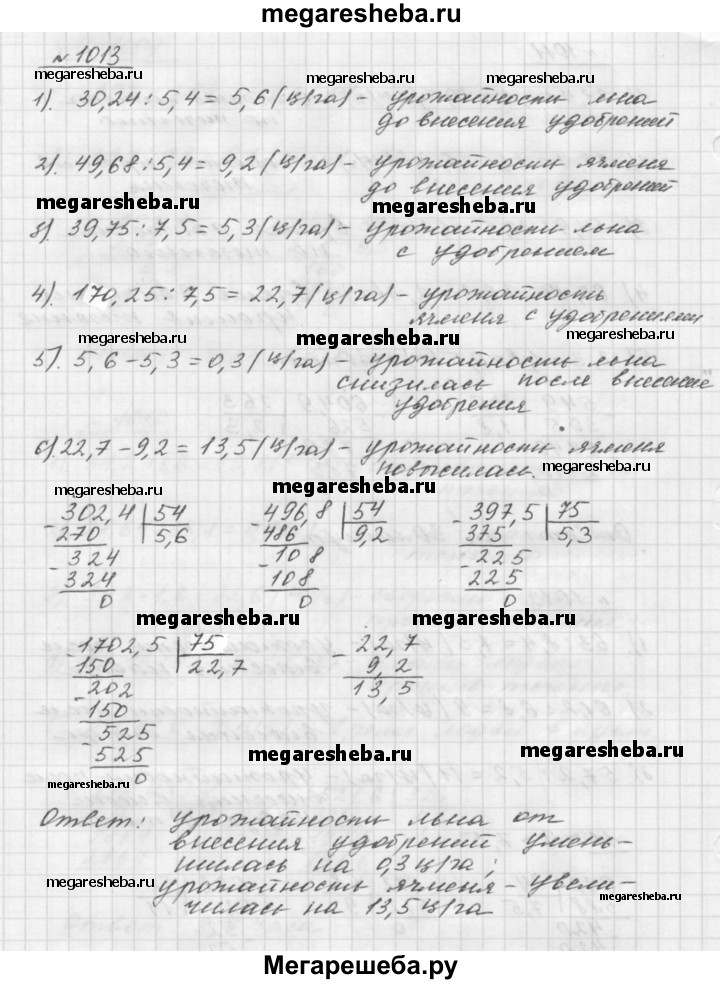 megaresheba.ru
№ 1013
megaresheba.ru megaresheba.ru
1). 30,24 : 5,4 = 5,6 (ц/га) - урожайность льна
до внесения удобрений
megaresheba.ru megaresheba.ru
2). 49,68 : 5,4 = 9,2 (ц/га) - урожайность ячменя
до внесения удобрений
megaresheba.ru megaresheba.ru
3). 39,75 : 7,5 = 5,3 (ц/га) - урожайность льна
с удобрением
4). 170,25 : 7,5 = 22,7 (ц/га) - урожайность
ячменя с удобрениями
megaresheba.ru megaresheba.ru
5). 5,6 - 5,3 = 0,3 (ц/га) - урожайность льна
снизилась после внесение
удобрения
6). 22,7 - 9,2 = 13,5 (ц/га) - урожайность ячменя
повысилась.
megaresheba.ru megaresheba.ru megaresheba.ru
- 302,4 | 54 - 496,8 | 54 - 397,5 | 75
270 5,6 486 9,2 375 5,3
- 324 - 108 - 225
324 108 225
0 0 0
megaresheba.ru megaresheba.ru
- 1702,5 | 75 - 22,7
150 22,7 9,2
- 202 13,5
150
- 525
525
0
megaresheba.ru megaresheba.ru megaresheba.ru
Ответ: урожайность льна от
внесения удобрений умень-
шилась на 0,3 ц/га;
урожайность ячменя - увели-
чилась на 13,5 ц/га
megaresheba.ru megaresheba.ru
Мегарешеба.ру